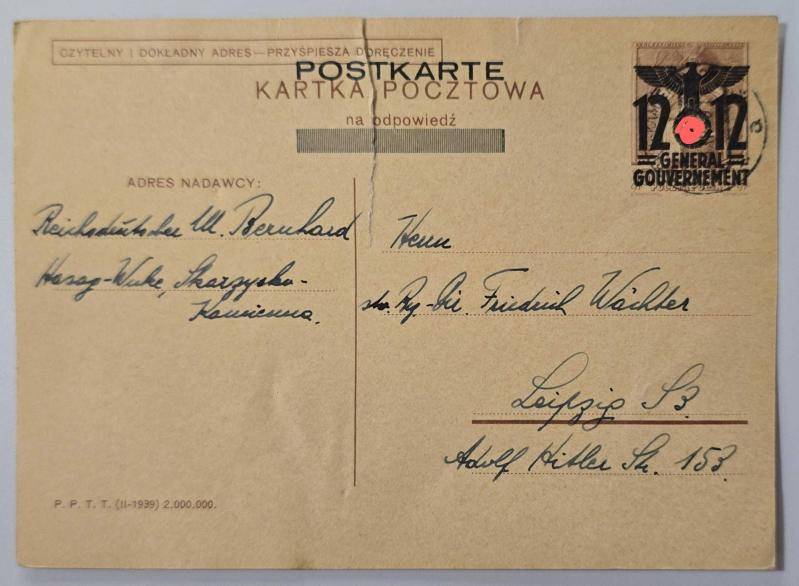 CZYTELNY I DOKŁADNY ADRES—PRZYŚPIESZA DORĘCZENIE
POSTKARTE
KARTKA POCZTOWA
na odpowiedź
12 12
GENERAL
GOUVERNEMENT
ADRES NADAWCY:
Reichsdeutscher M. Bernhard
Hasag-Werke, Skarzysko-
Kamienna.
Herrn
stv. Rg.-Dir. Friedrich Wächter
Leipzig S3.
Adolf Hitler Str. 153.
P. P. T. T. (II-1939) 2.000.000.